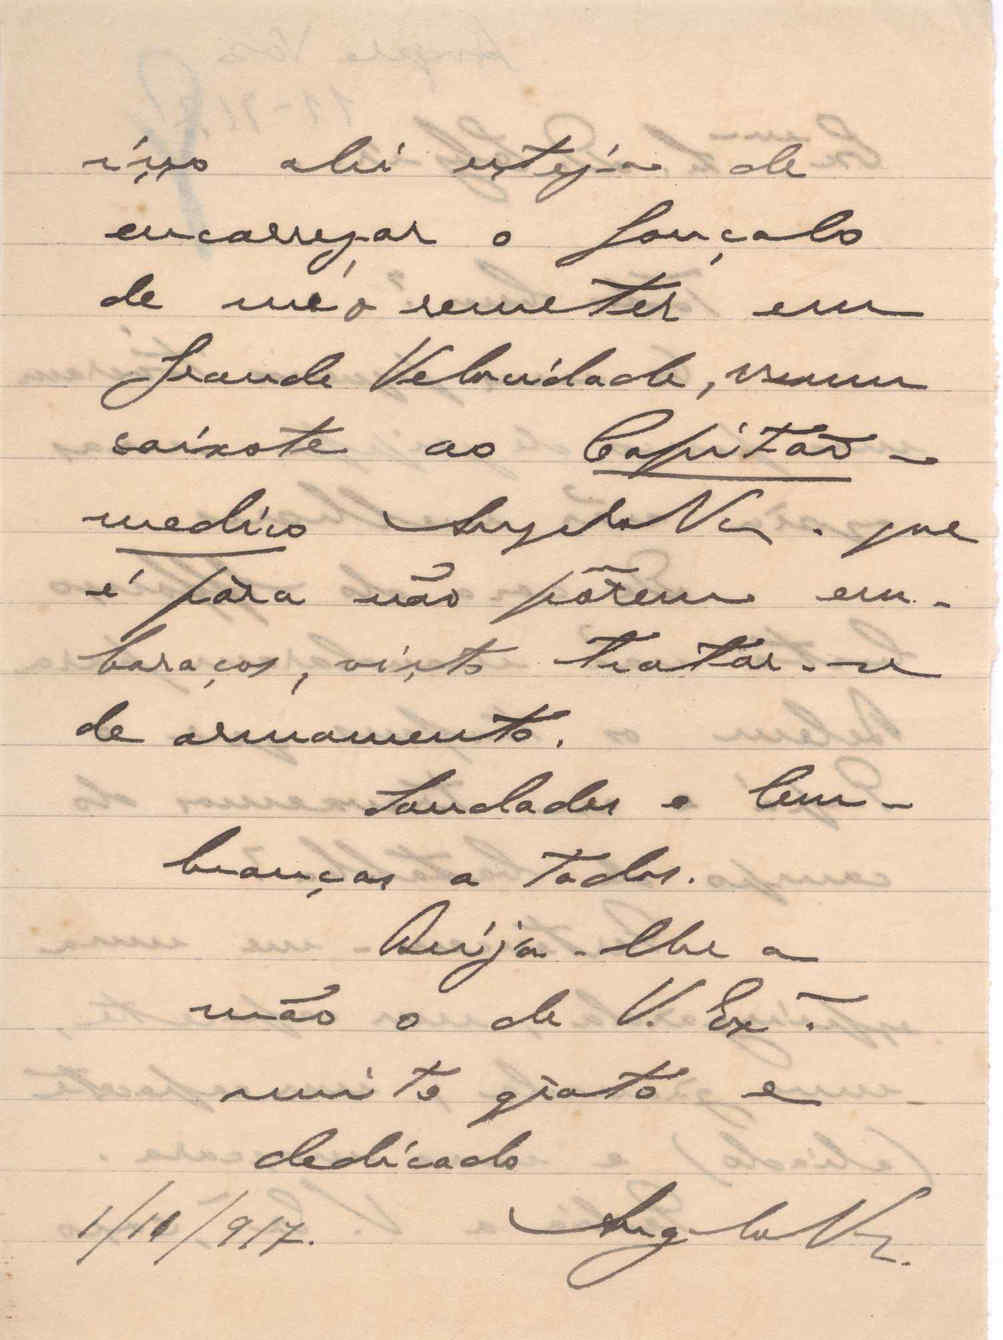 isso ahi esteja de
encarregar o Gonçalo
de m'o remeter em
Grande Velocidade, n'um
caixote ao Capitão-
medico Angelo Vaz. que
é para não pôrem em-
baraços, visto tratar-se
de armamento.
Saudades e lem-
branças a todos.
Beija-lhe a
mão o de V. Exª.
muito grato e
dedicado
1/11/917.
Angelo Vaz.